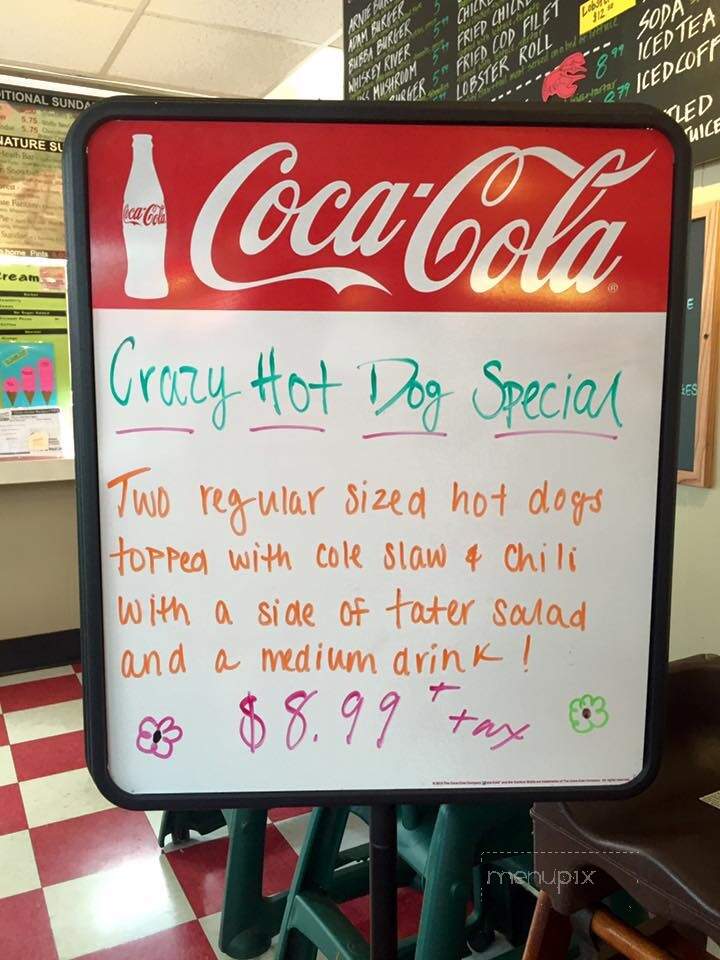 ARNIE BURGER
ADAM BURGER
BUBBA BURGER
WHISKEY RIVER
MUSHROOM
BURGER
FRIED COD FILET
LOBSTER ROLL
8.99
SODA
ICED TEA
ICED COFF
ITIONAL SUNDA
5.75
5.75
NATURE SU
ream
Coca-Cola
Coca-Cola
Crazy Hot Dog Special
Two regular sized hot dogs
topped with cole slaw & chili
with a side of tater salad
and a medium drink!
$8.99 + tax
menupix